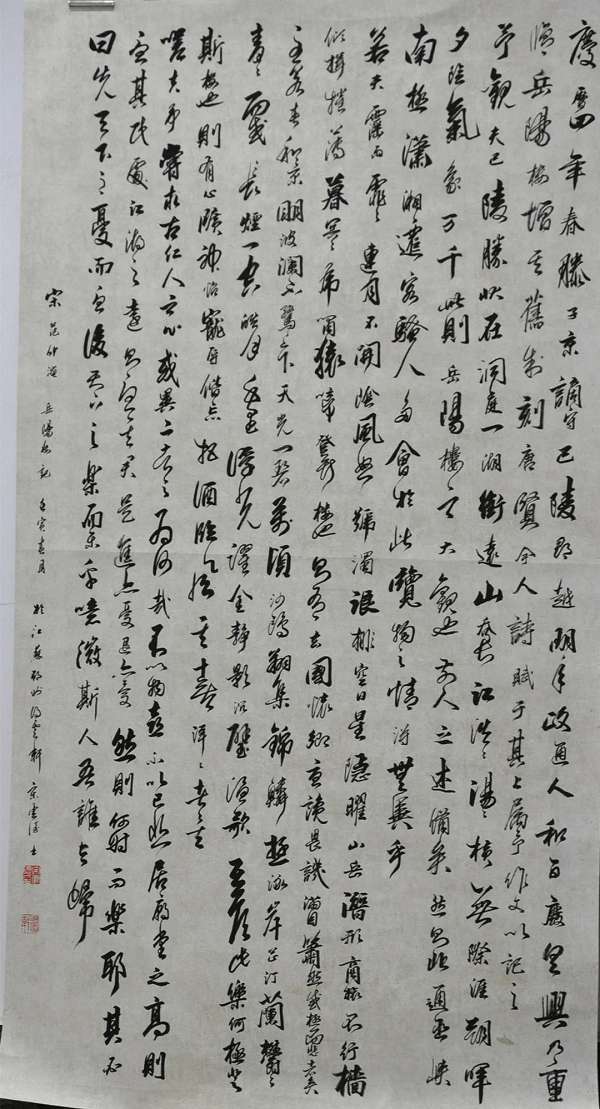 慶曆四年春滕子京謫守巴陵郡越明年政通人和百廢具興乃重
修岳陽樓增其舊制刻唐賢今人詩賦于其上屬予作文以記之
予觀夫巴陵勝狀在洞庭一湖銜遠山吞長江浩浩湯湯橫無際涯朝暉
夕陰氣象万千此則岳陽樓之大觀也前人之述備矣然則北通巫峽
南極瀟湘遷客騷人多會於此覽物之情得無異乎
若夫霪雨霏霏連月不開陰風怒號濁浪排空日星隱曜山岳潛形商旅不行檣
傾楫摧薄暮冥冥虎嘯猿啼登斯樓也則有去國懷鄉憂讒畏譏滿目蕭然感極而悲者矣
至若春和景明波瀾不驚上下天光一碧萬頃沙鷗翔集錦鱗游泳岸芷汀蘭鬱鬱
青青而或長煙一空皓月千里浮光躍金靜影沉璧漁歌互答此樂何極登
斯樓也則有心曠神怡寵辱偕忘把酒臨風其喜洋洋者矣
嗟夫予嘗求古仁人之心或異二者之為何哉不以物喜不以己悲居廟堂之高則
憂其民處江湖之遠則憂其君是進亦憂退亦憂然則何時而樂耶其必
曰先天下之憂而憂後天下之樂而樂乎噫微斯人吾誰與歸
宋范仲淹岳陽樓記壬寅春月於江蘇軒